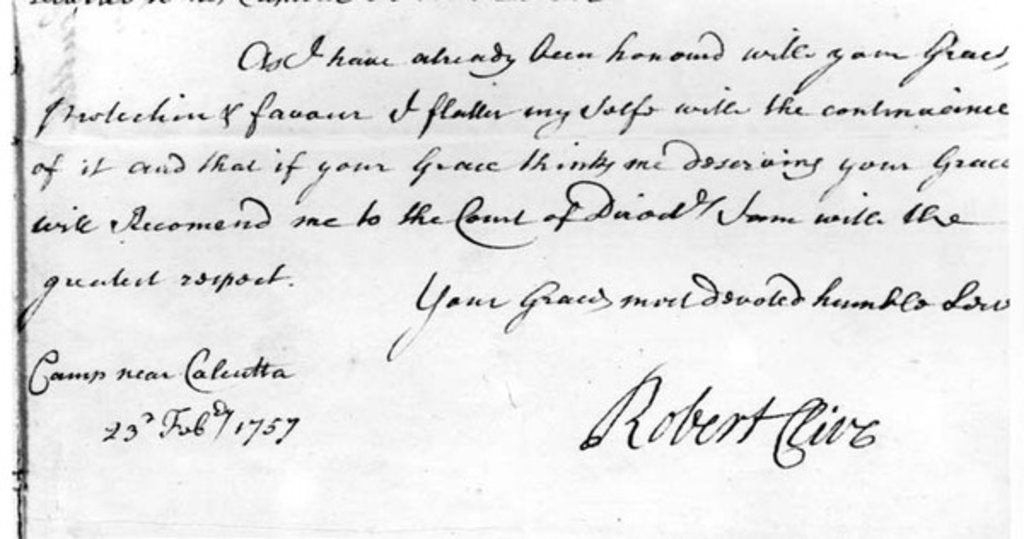 As I have already been honourd with your Graces
Protection & favour I flatter my Selfe with the continuance
of it and that if your Grace thinks me deserving your Grace
will Recomend me to the Court of Direcd.rs I am with the
greatest respect.
Your Graces most devoted humble Serv
Camp near Calcutta
23d Feb.ry 1757
Robert Clive